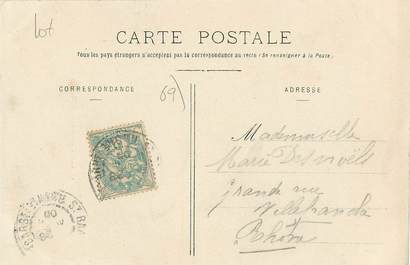 Lot
CARTE POSTALE
Tous les pays étrangers n'acceptent pas la correspondance au recto (Se renseigner à la Poste)
CORRESPONDANCE
69)
ADRESSE
Mademoiselle
Marie
grande rue
Rhône